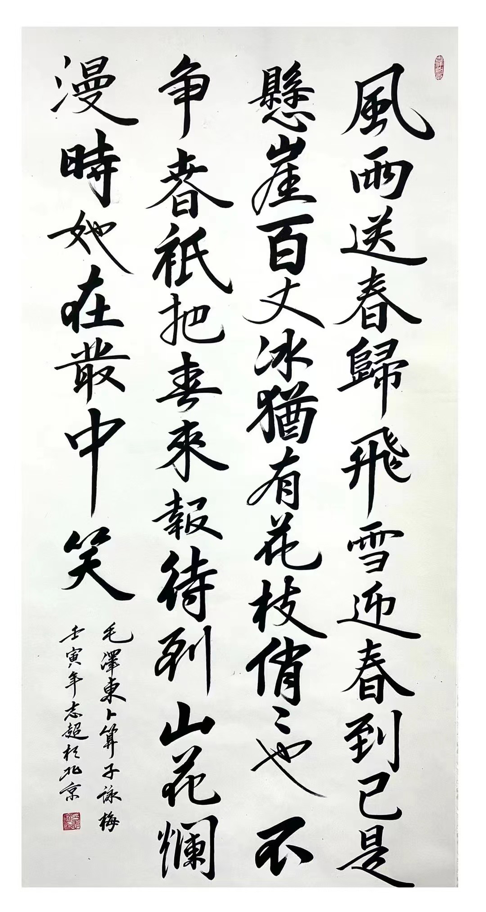 風雨送春歸飛雪迎春到已是
懸崖百丈冰猶有花枝俏〻也不
争春衹把春來報待列山花爛
漫時她在叢中笑
毛澤東卜算子詠梅
壬寅年志超於北京